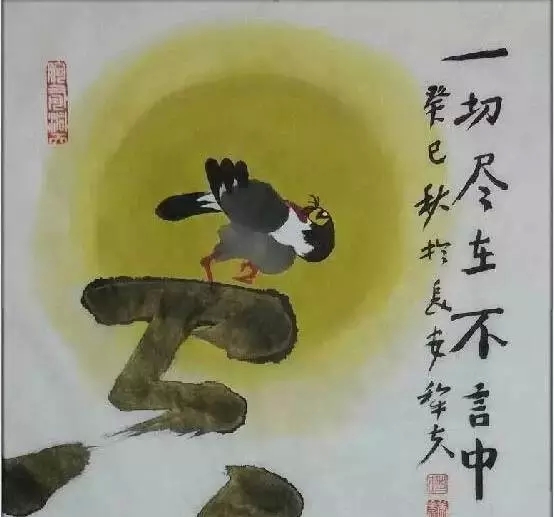 一切尽在不言中
癸巳秋于长安